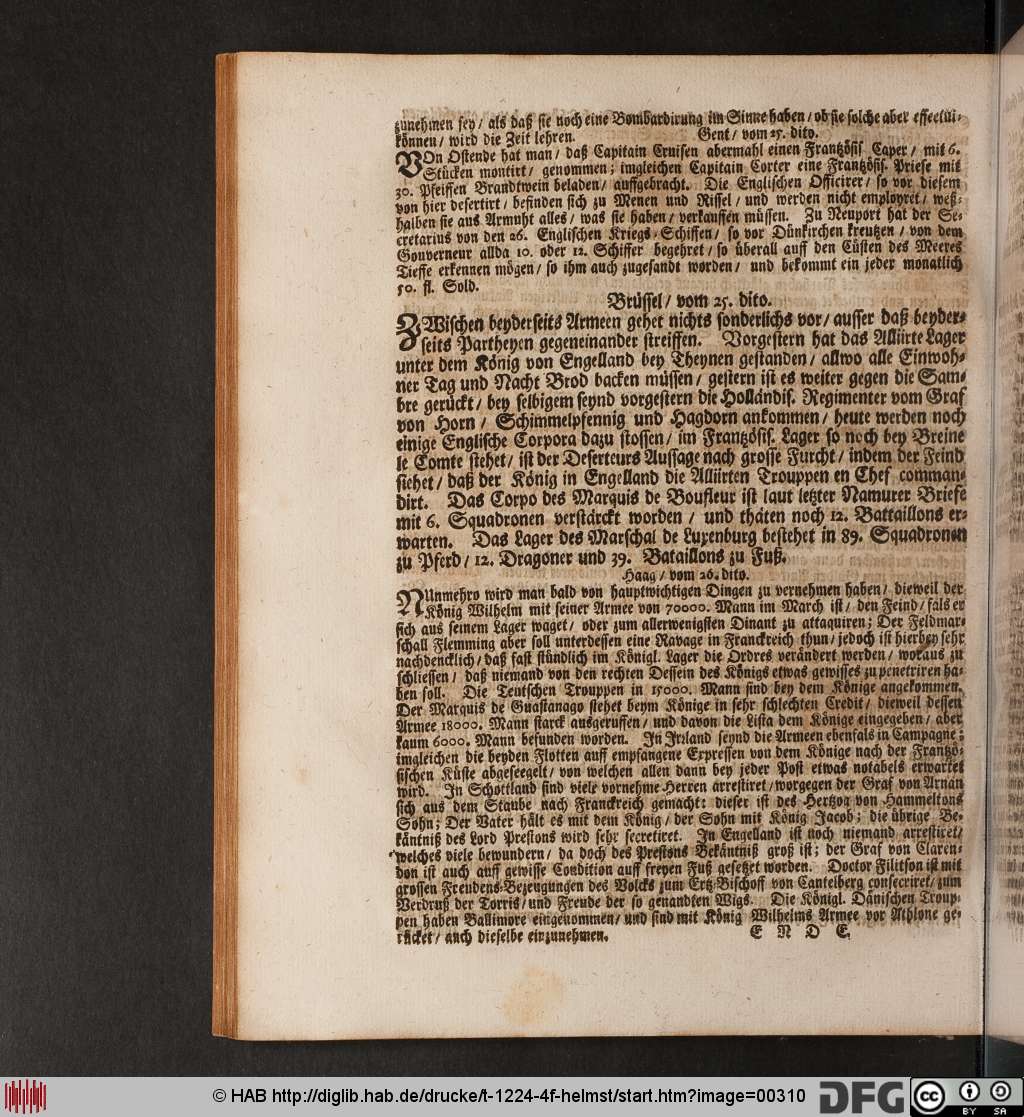 zunehmen sey / als daß sie noch eine Bombardirung im Sinne haben / ob sie solche aber effectui-
können / wird die Zeit lehren. Gent / vom 25. dito.
VOn Ostende hat man / daß Capitain Cruisen abermahl einen Frantzösis Caper / mit 6.
Stücken montirt / genommen; imgleichen Capitain Corter eine Frantzösis. Priese mit
30. Pfeiffen Brandtwein beladen / auffgebracht. Die Englischen Officirer / so vor diesem
von hier desertirt / befinden sich zu Menen und Rissel / und werden nicht employret / weß-
halben sie aus Armuht alles / was sie haben / verkauffen müssen. Zu Neuport hat der Se-
cretarius von den 26. Englischen Kriegs-Schiffen / so vor Dünkirchen kreutzen / von dem
Gouverneur allda 10. oder 12. Schiffer begehret / so überall auff den Cüsten des Meeres
Tieffe erkennen mögen / so ihm auch zugesandt worden / und bekommt ein jeder monatlich
50. fl. Sold.
Brüssel / vom 25. dito.
ZWischen beyderseits Armeen gehet nichts sonderlichs vor / ausser daß beyder-
seits Partheyen gegeneinander streiffen. Vorgestern hat das Alliirte Lager
unter dem König von Engelland bey Theynen gestanden / allwo alle Einwoh-
ner Tag und Nacht Brod backen müssen / gestern ist es weiter gegen die Sam-
bre gerückt / bey selbigem seynd vorgestern die Holländis. Regimenter vom Graf
von Horn / Schimmelpfennig und Hagdorn ankommen / heute werden noch
einige Englische Corpora dazu stossen / im Frantzösis. Lager so noch bey Breine
le Comte stehet / ist der Deserteurs Aussage nach grosse Furcht / indem der Feind
siehet / daß der König in Engelland die Alliirten Trouppen en Chef comman-
dirt. Das Corpo des Marquis de Boufleur ist laut letzter Namurer Briefe
mit 6. Squadronen verstärckt worden / und thäten noch 12. Battaillons er-
warten. Das Lager des Marschal de Luxenburg bestehet in 89. Squadronen
zu Pferd / 12. Dragoner und 39. Bataillons zu Fuß.
Haag / vom 26. dito.
NUnmehro wird man bald von hauptwichtigen Dingen zu vernehmen haben / dieweil der
König Wilhelm mit seiner Armee von 70000. Mann im March ist / den Feind / fals er
sich aus seinem Lager waget / oder zum allerwenigsten Dinant zu attaquiren; Der Feldmar-
schall Flemming aber soll unterdessen eine Ravage in Franckreich thun / jedoch ist hierbey sehr
nachdencklich / daß fast stündlich im Königl. Lager die Ordres verändert werden / woraus zu
schliessen / daß niemand von den rechten Dessein des Königs etwas gewisses zu penetriren ha-
ben soll. Die Teutschen Trouppen in 15000. Mann sind bey dem Könige angekommen.
Der Marquis de Guastanago stehet beym Könige in sehr schlechten Credit / dieweil dessen
Armee 18000. Mann starck ausgeruffen / und davon die Lista dem Könige eingegeben / aber
kaum 6000. Mann befunden worden. In Irrland seynd die Armeen ebenfals in Campagne;
imgleichen die beyden Flotten auff empfangene Expressen von dem Könige nach der Frantzö-
sischen Küste abgeseegelt / von welchen allen dann bey jeder Post etwas notabels erwartet
wird. In Schottland sind viele vornehme Herren arrestiret / worgegen der Graf von Arnan
sich aus dem Staube nach Franckreich gemacht: dieser ist des Hertzog von Hammeltons
Sohn; Der Vater hält es mit dem König / der Sohn mit König Jacob; die übrige Be-
käntniß des Lord Prestons wird sehr secretiret. In Engelland ist noch niemand arrestiret /
welches viele bewundern / da doch des Prestons Bekäntniß groß ist; der Graf von Claren-
don ist auch auff gewisse Condition auff freyen Fuß gesetzet worden. Doctor Filitson ist mit
grossen Freudens-Bezeugungen des Volcks zum Ertz-Bischoff von Cantelberg consecriret / zum
Verdruß der Torris / und Freude der so genandten Wigs. Die Königl. Dänischen Troup-
pen haben Ballimore eingenommen / und sind mit König Wilhelms Armee vor Athlone ge-
rücket / auch dieselbe einzunehmen. E N D E.
© HAB http://diglib.hab.de/drucke/t-1224-4f-helmst/start.htm?image=00310
DFG
cc BY SA